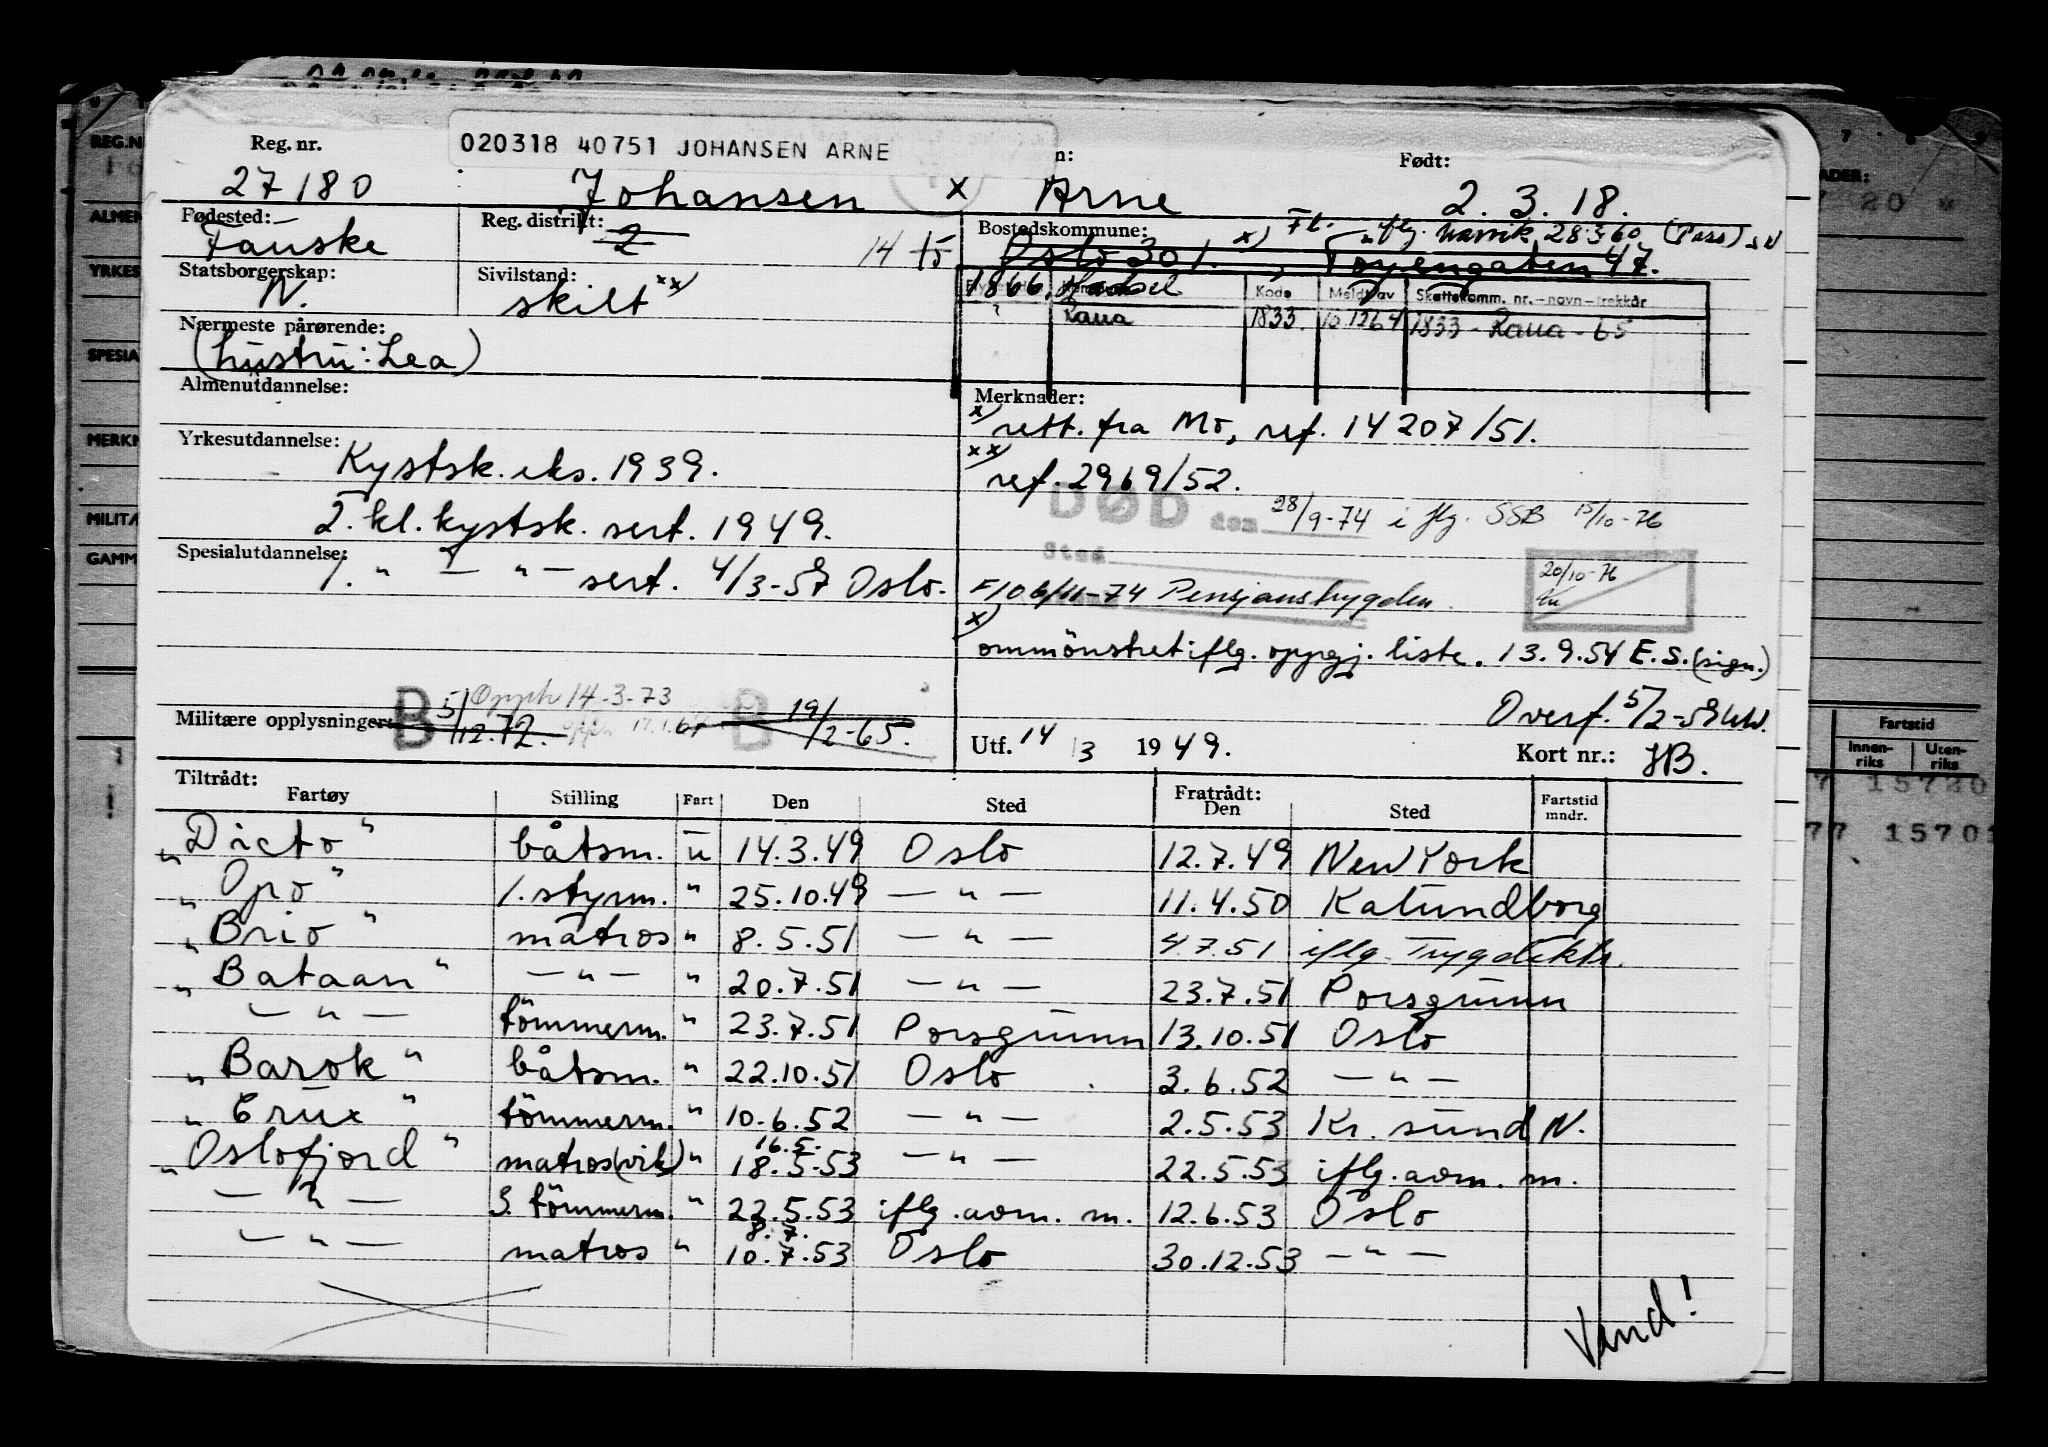 020318 40751 JOHANSEN ARNE
Reg. nr. n: Født:
27180 Johansen x Arne 2.3.18.
Fødested: Reg. distrikt: Bostedskommune:
Fauske 2 14 15 Oslo 301. x) Tøyengaten 47.
iflg. Narvik 28.3.60 (Pass)
Statsborgerskap: Sivilstand:
N. skilt xx)
1866 Hadsel Kode Meldt av Skattekomm. nr. – navn – trekkår
" Rana 1833. 1833 - Rana - 65
Nærmeste pårørende:
(hustru: Lea)
Almenutdannelse: Merknader:
x) rett. fra Mo, ref. 14207/51.
Yrkesutdannelse:
Kystsk. eks. 1939.
xx) ref. 2969/52.
2. kl. kystsk. sert. 1949.
DØD den 28/9-74 i flg. SSB 15/10-76
Sted
Spesialutdannelse:
1. " — " — sert. 4/3-57 Oslo.
F/O 6/11-74 Pensjonstrygden
20/10-76
x) ommönstret iflg. oppgj. liste. 13.9.54 E.S. (sign.)
Overf. 5/2-59
Militære opplysninger: B 5/12.72. Opph 14-3-73 B 19/2-65.
Utf. 14/3 1949. Kort nr.: HB.
Tiltrådt: Fratrådt:
Fartøy Stilling Fart Den Sted Den Sted Fartstid mndr.
"Dicto" båtsm. u 14.3.49 Oslo 12.7.49 New York
"Opo" 1. styrm. " 25.10.49 — " — 11.4.50 Kalundborg
"Brio" matros " 8.5.51 — " — 4.7.51 iflg. Trygdektr.
"Bataan" — " — " 20.7.51 — " — 23.7.51 Porsgrunn
— " — tömmerm. " 23.7.51 Porsgrunn 13.10.51 Oslo
"Barok" båtsm. " 22.10.51 Oslo 3.6.52 — " —
"Crux" tömmerm. " 10.6.52 — " — 2.5.53 Kr. sund N.
16.5.
"Oslofjord" matros (vik) " 18.5.53 — " — 22.5.53 iflg. avm. m.
— " — 3. tömmerm. " 22.5.53 iflg. avm. m. 12.6.53 Oslo
8.7.
— " — matros " 10.7.53 Oslo 30.12.53 — " —
Vend!
REG.N
ALMEN
YRKES
SPESIA
MERKN
MILITÆ
GAMM
Fartstid
Innen-riks Uten-riks
7 15720
77 15701